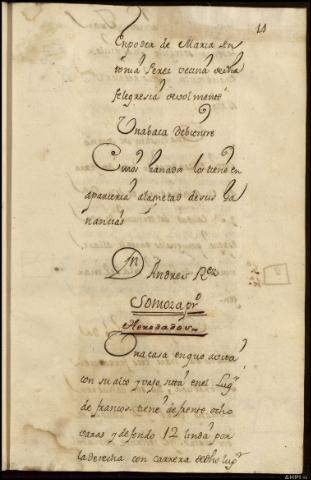 14
En poder de Maria An
tonia Perez vecina de dha
felegresia de volmente
Una baca de bientre
Cuios ganados los tiene en
aparceria a la metad de sus ga
nancias
Dn Andres Rez
Somoza pro
Aerodado
Una casa en que avita
con su alto y vajo, sita en el Lugr
de francos, tiene de frente ocho
varas y de fondo 12 linda por
la derecha con carrera de dho lugr
AHPL